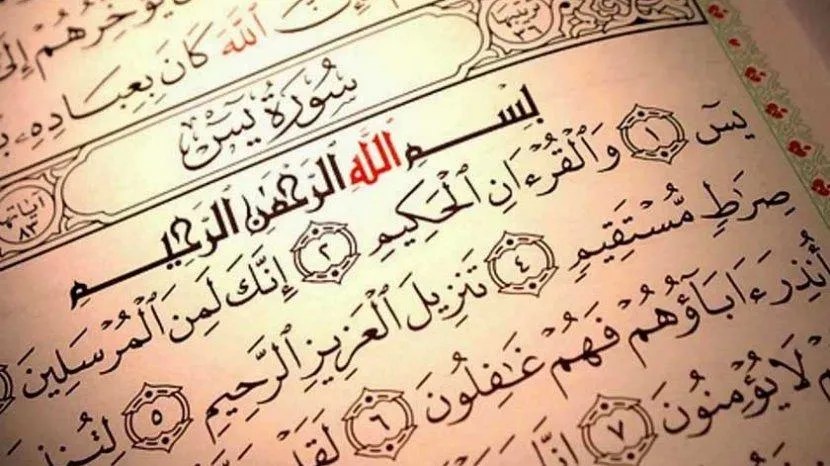 يُؤَخِّرُهُمْ إِلَىٰ
إِنَّ ٱللَّهَ كَانَ بِعِبَادِهِۦ
ترتيبها ٣٦
سُورَةُ يسٓ
آياتها ٨٣
بِسْمِ ٱللَّهِ ٱلرَّحْمَٰنِ ٱلرَّحِيمِ
يسٓ ١ وَٱلْقُرْءَانِ ٱلْحَكِيمِ ٢ إِنَّكَ لَمِنَ ٱلْمُرْسَلِينَ
صِرَٰطٍ مُّسْتَقِيمٍ ٤ تَنزِيلَ ٱلْعَزِيزِ ٱلرَّحِيمِ ٥
أُنذِرَ ءَابَآؤُهُمْ فَهُمْ غَٰفِلُونَ ٦ لَقَدْ
لَا يُؤْمِنُونَ ٧ إِنَّا